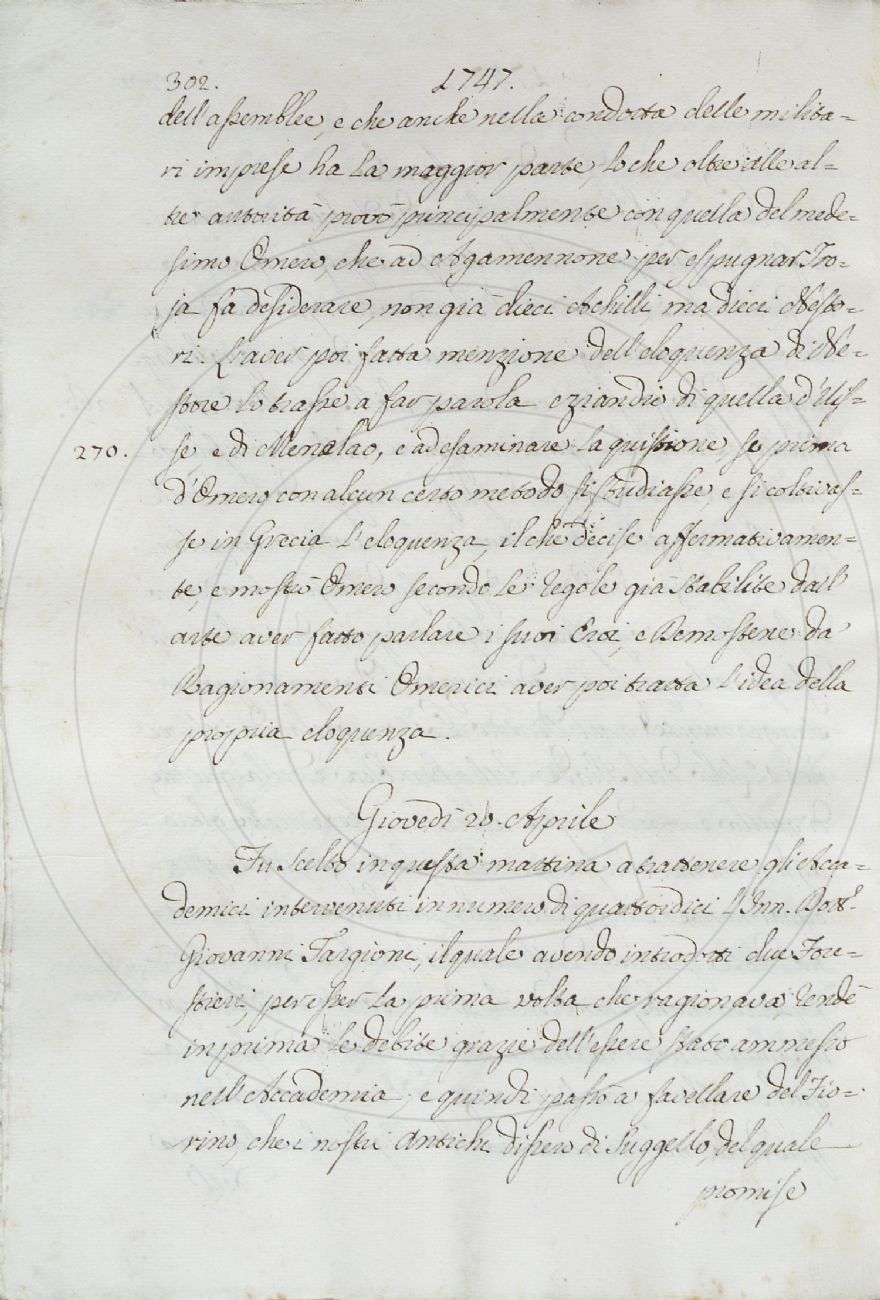 302.
1747.
dell'assemblee, e che anche nella condotta delle milita=
ri imprese ha la maggior parte, lo che oltre alle al=
tre autorità provò principalmente con quella del mede=
simo Omero, che ad Agamennone per espugnar Tro=
ja fa desiderare, non già dieci Achilli, ma dieci Nesto=
ri. L'aver poi fatta menzione dell'eloquenza di Ne=
store lo trasse a far parola eziandio di quella d'Ulis=
270.
se, e di Menelao, e ad esaminare la quistione, se prima
d'Omero con alcun certo metodo si studiasse, e si coltivas=
se in Grecia l'eloquenza, il che decise affermativamen=
te, e mostrò Omero secondo le regole già stabilite dall'
arte aver fatto parlare i suoi Eroi, e Demostene da'
Ragionamenti Omerici aver poi tratta l'idea della
propria eloquenza.
Giovedì 20. Aprile
Fu scelto in questa mattina a trattenere gli Acca=
demici intervenuti in numero di quattordici l'Inn. Dott.
Giovanni Targioni, il quale avendo introdotti due Fore=
stieri, per esser la prima volta che ragionava, rendè
in prima le debite grazie dell'essere stato ammesso
nell'Accademia, e quindi passò a favellare del Fio=
rino, che i nostri Antichi dissero di Suggello, del quale
promise